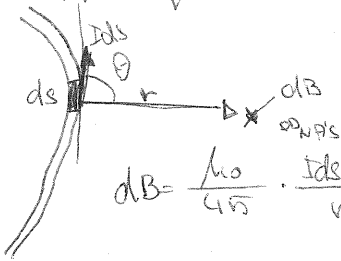 Ids
θ
ds
r
dB
dB = μ₀ / 4π · Ids